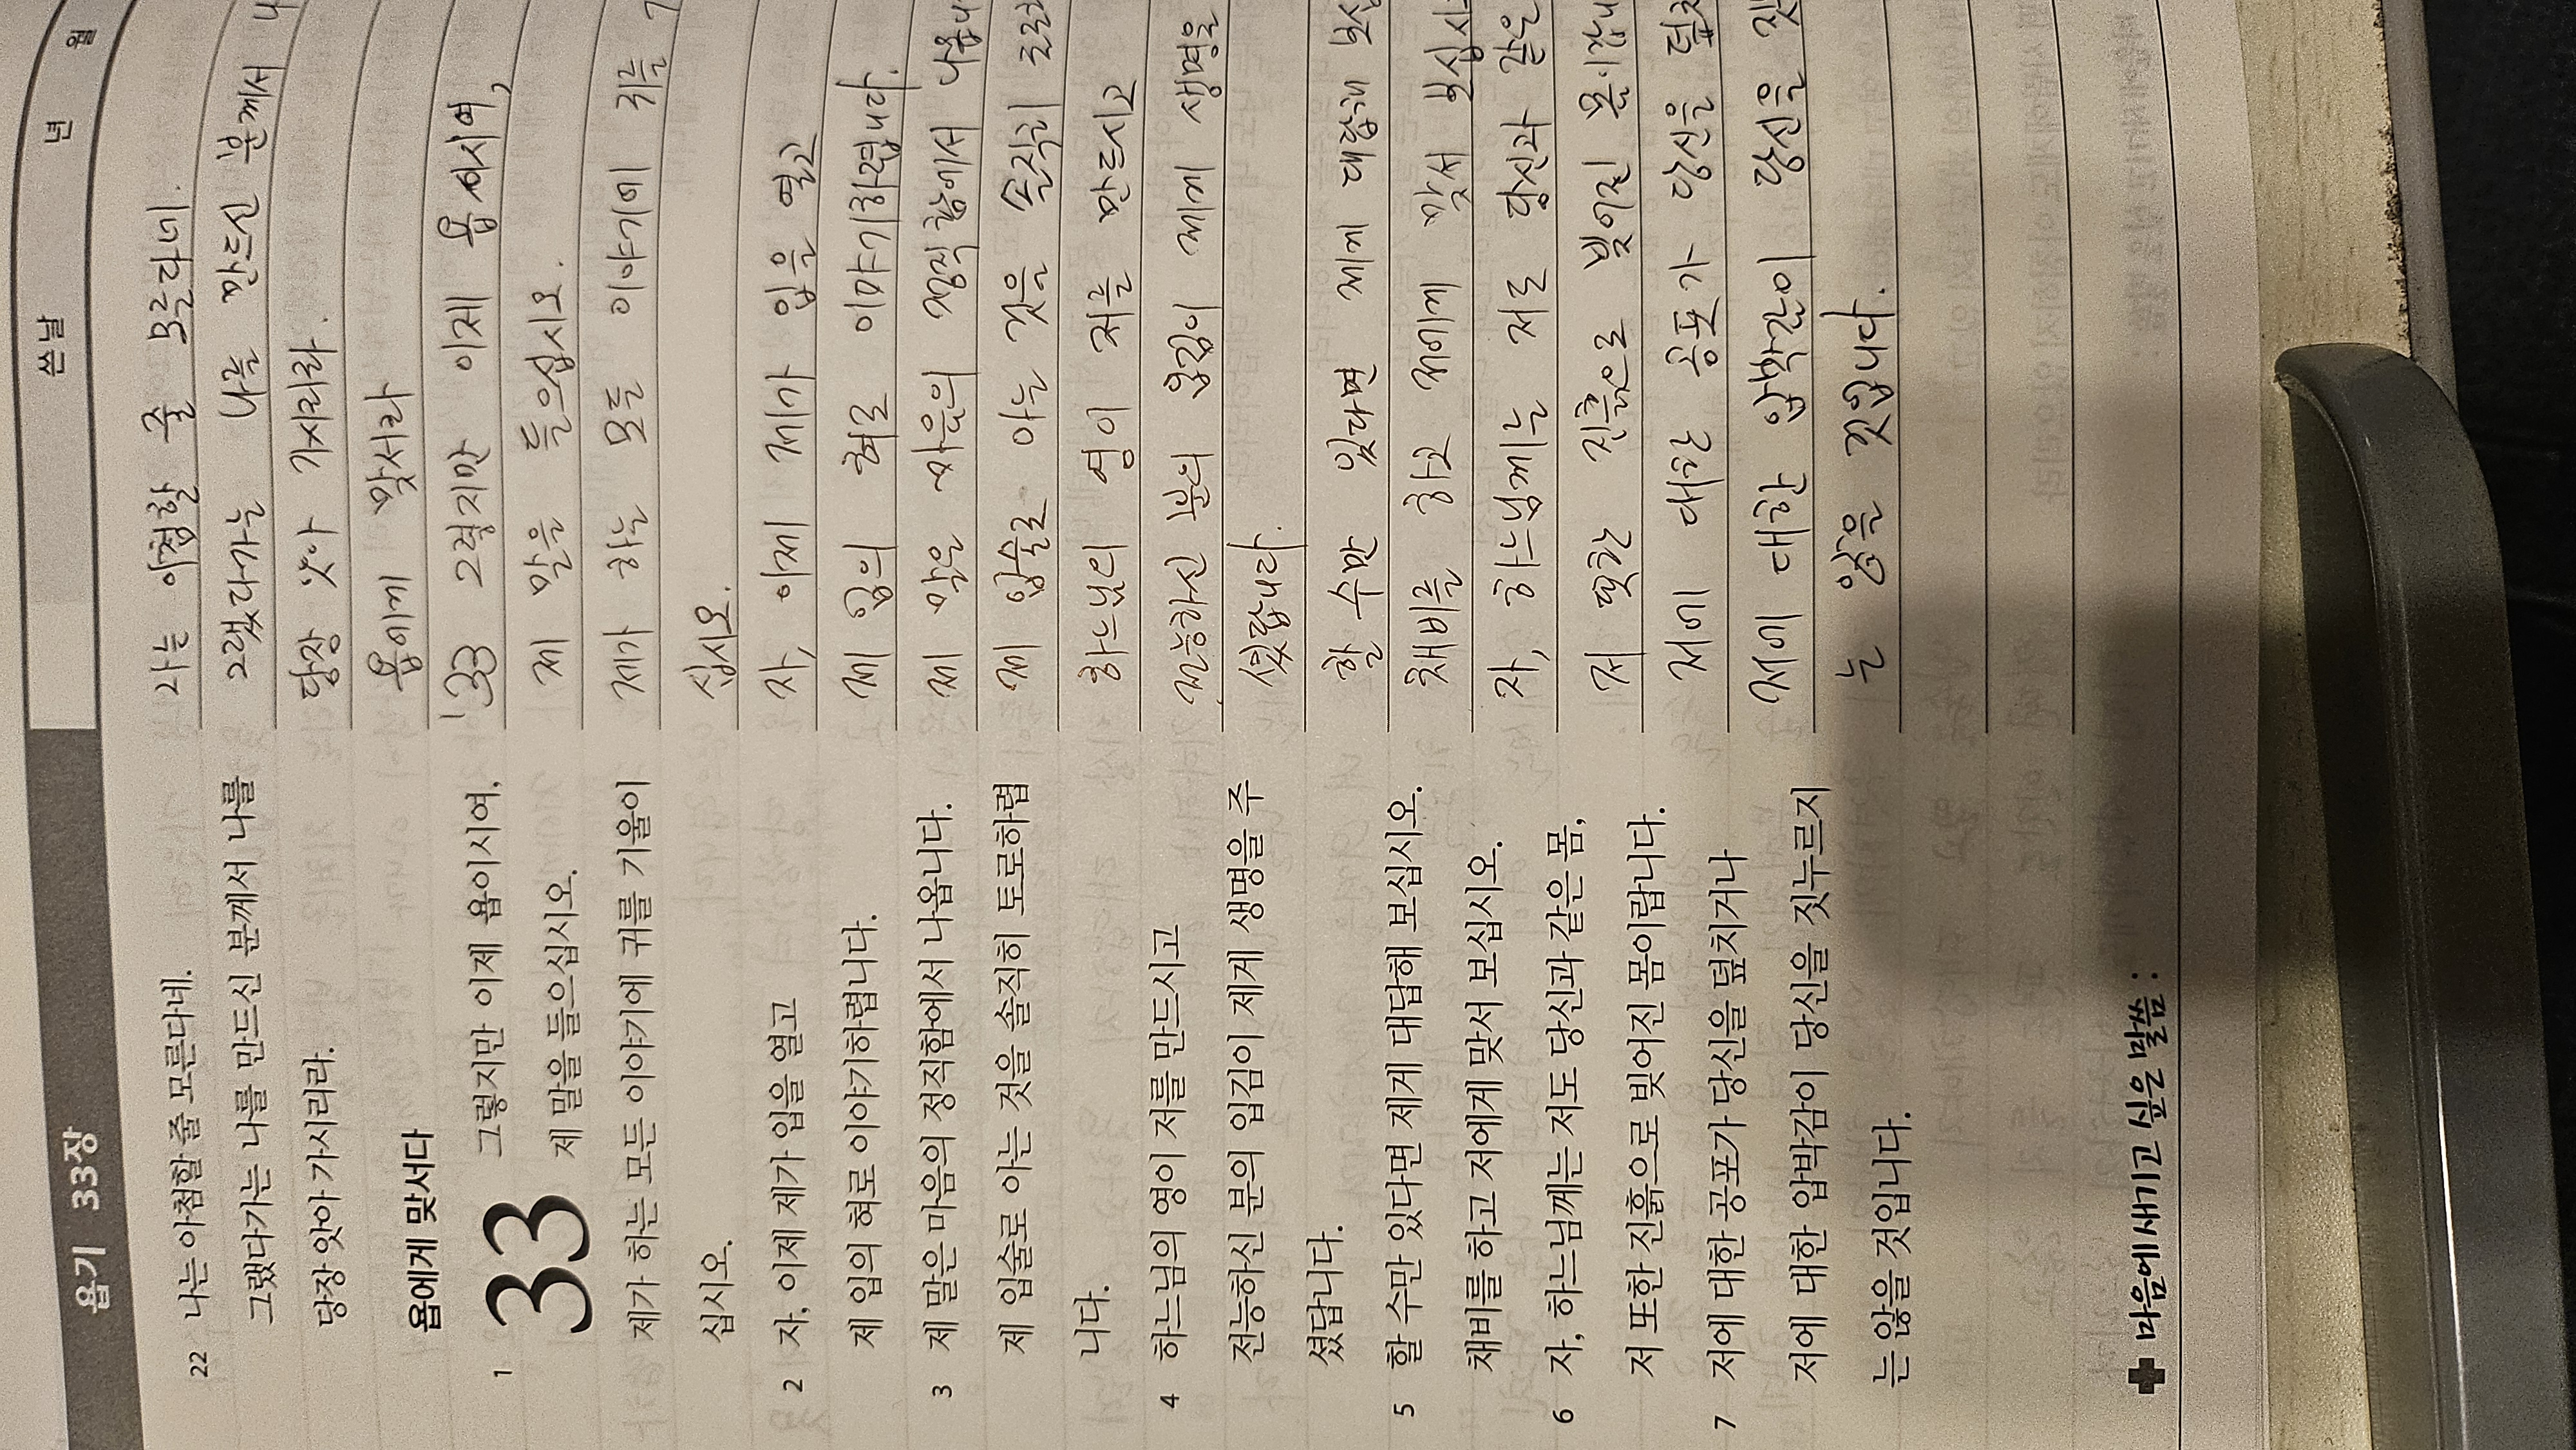 욥기 33장
쓴날 년 월
22 나는 아첨할 줄 모른다네.
그랬다가는 나를 만드신 분께서 나를
당장 앗아 가시리라.
욥에게 맞서다
33
1 그렇지만 이제 욥이시여,
제 말을 들으십시오.
제가 하는 모든 이야기에 귀를 기울이
십시오.
2 자, 이제 제가 입을 열고
제 입의 혀로 이야기하렵니다.
3 제 말은 마음의 정직함에서 나옵니다.
제 입술로 아는 것을 솔직히 토로하렵
니다.
4 하느님의 영이 저를 만드시고
전능하신 분의 입김이 제게 생명을 주
셨답니다.
5 할 수만 있다면 제게 대답해 보십시오.
채비를 하고 저에게 맞서 보십시오.
6 자, 하느님께는 저도 당신과 같은 몸,
저 또한 진흙으로 빚어진 몸이랍니다.
7 저에 대한 공포가 당신을 덮치거나
저에 대한 압박감이 당신을 짓누르지
는 않을 것입니다.
✚ 마음에 새기고 싶은 말씀 :
나는 아첨할 줄 모른다네.
그랬다가는 나를 만드신 분께서
당장 앗아 가시리라.
욥에게 맞서라
33 그렇지만 이제 욥이시여,
제 말을 들으십시오.
제가 하는 모든 이야기에 귀를
십시오.
자, 이제 제가 입을 열고
제 입의 혀로 이야기하렵니다.
제 말은 마음의 정직함에서 나옵니
제 입술로 아는 것을 솔직히
하느님의 영이 저를 만드시고
전능하신 분의 입김이 제게 생명을
셨답니다.
할 수만 있다면 제게 대답해 보십
채비를 하고 저에게 맞서 보십시
자, 하느님께는 저도 당신과 같은
저 또한 진흙으로 빚어진 몸이랍니
저에 대한 공포가 당신을 덮치
저에 대한 압박감이 당신을 짓
는 않을 것입니다.